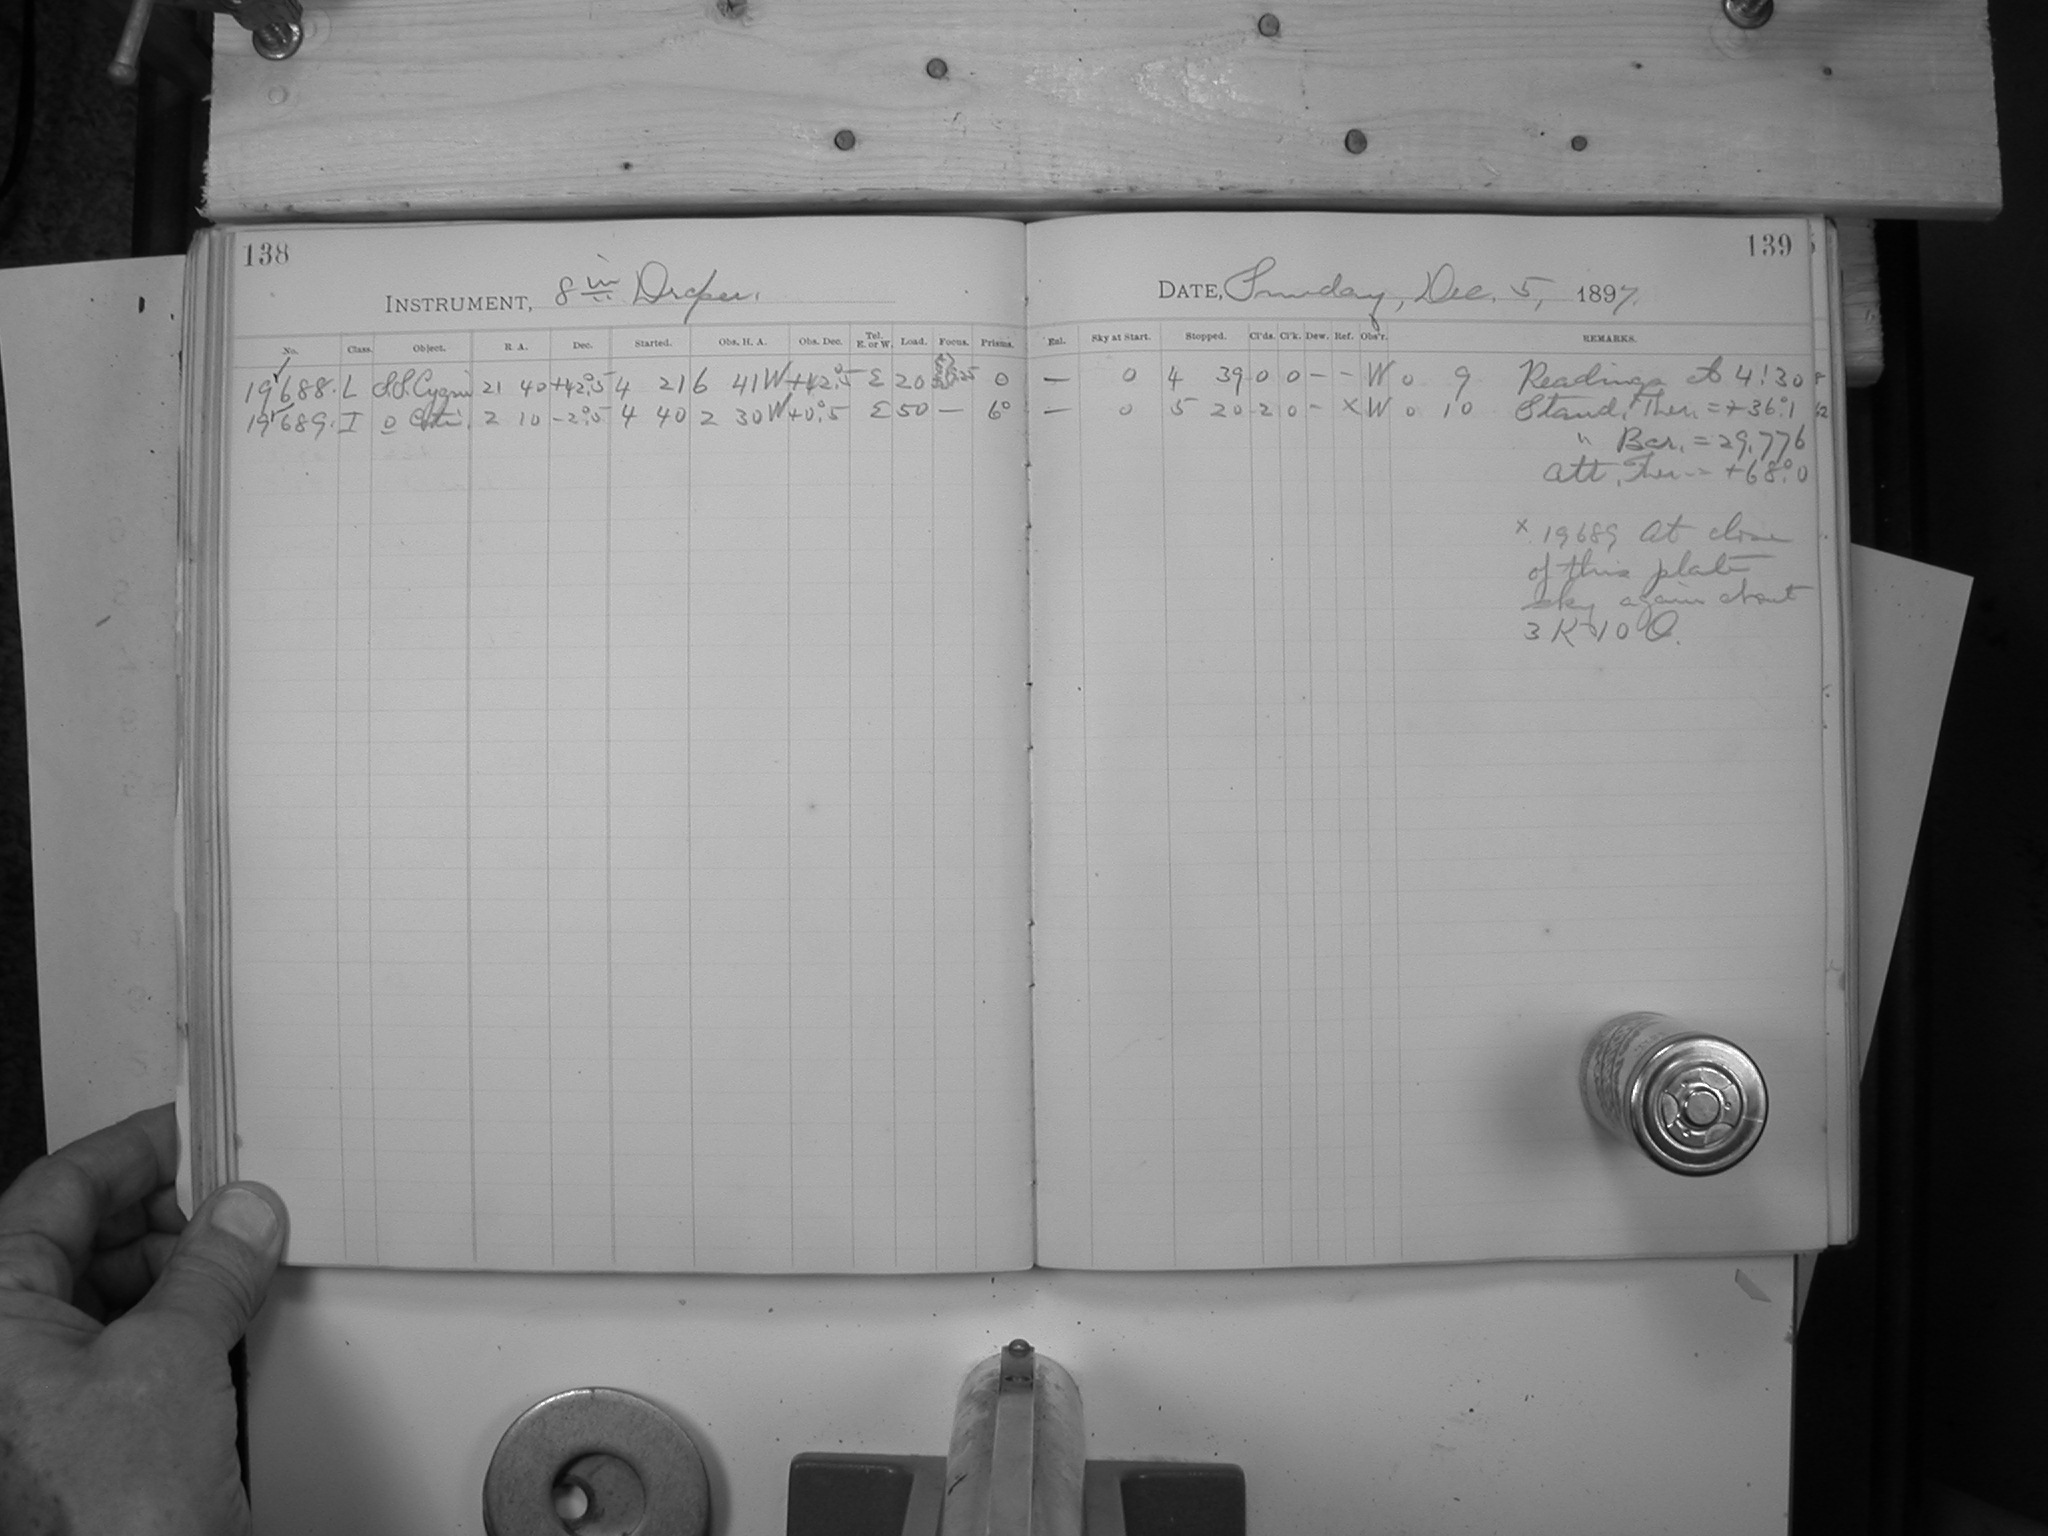 138
INSTRUMENT, 8 in Draper.
No. Class. Object. R. A. Dec. Started. Obs. H. A. Obs. Dec. Tel. E. or W. Load. Focus. Prisms.
19688. L S.S. Cygni 21 40 +42°.5 4 21 6 41 W +42°.5 E 20 0
19689. I o Ceti. 2 10 -2°.5 4 40 2 30 W +0°.5 E 50 — 6°
139
DATE, Sunday, Dec. 5, 1897.
Exl. Sky at Start. Stopped. Cl'ds. Cl'k. Dew. Ref. Obs'r. REMARKS.
— 0 4 39 0 0 - - W 0 9 Readings at 4:30
— 0 5 20 2 0 - X W 0 10 Stand. Ther. = +36°.1
" Bar. = 29.776
Att. Ther. = +68°.0
x 19689 At close
of this plate
sky again about
3 K 10 O.